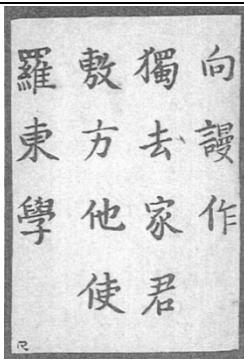 向謾作
獨去家君
敷方他使
羅東學